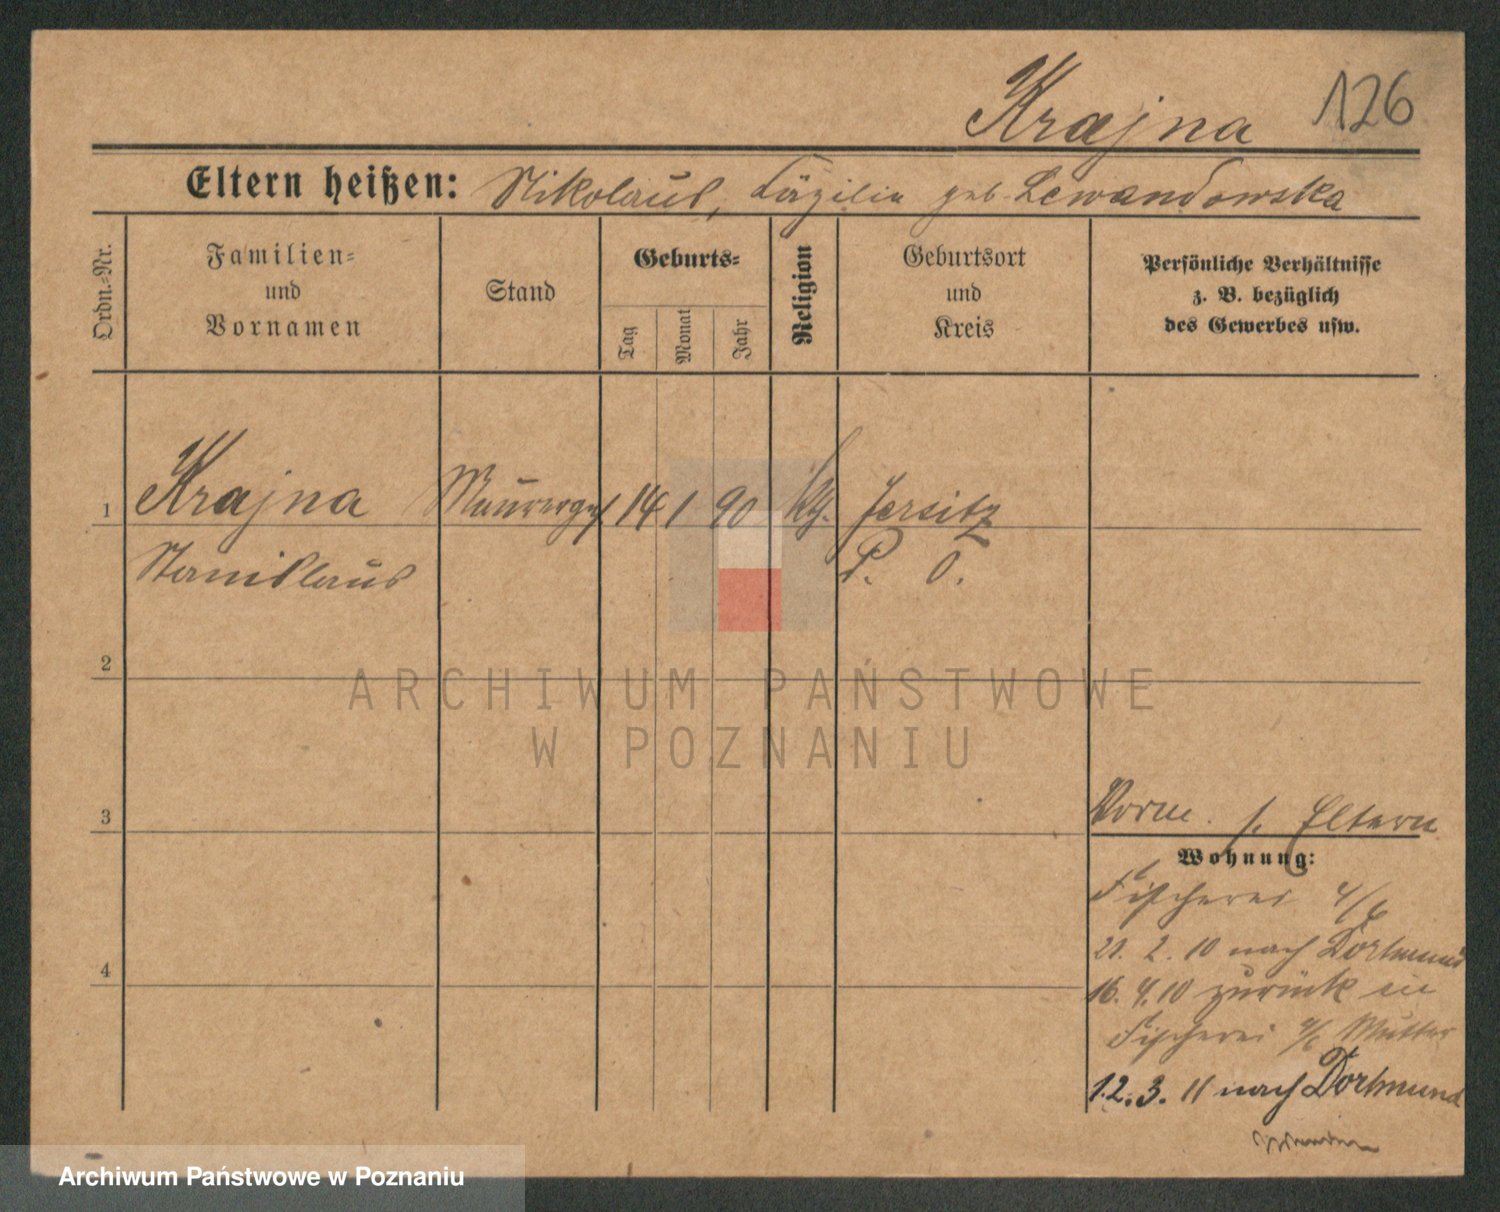 Krajna 126
Eltern heißen: Nikolaus, Cäzilia geb. Lewandowska
Ordn.=Nr.
Familien=
und
Vornamen
Stand
Geburts=
Tag
Monat
Jahr
Religion
Geburtsort
und
Kreis
Persönliche Verhältnisse
z. B. bezüglich
des Gewerbes usw.
1 Krajna Maurerges. 14 1 90 kth. Jersitz
Stanislaus P. O.
2
3
4
Vorm. s. Eltern
Wohnung:
Fischerei 4/6
21. 2. 10 nach Dortmund
16. 4. 10 zurück in
Fischerei 4/6 Mutter
12. 3. 11 nach Dortmund
ARCHIWUM PAŃSTWOWE
W POZNANIU
Archiwum Państwowe w Poznaniu